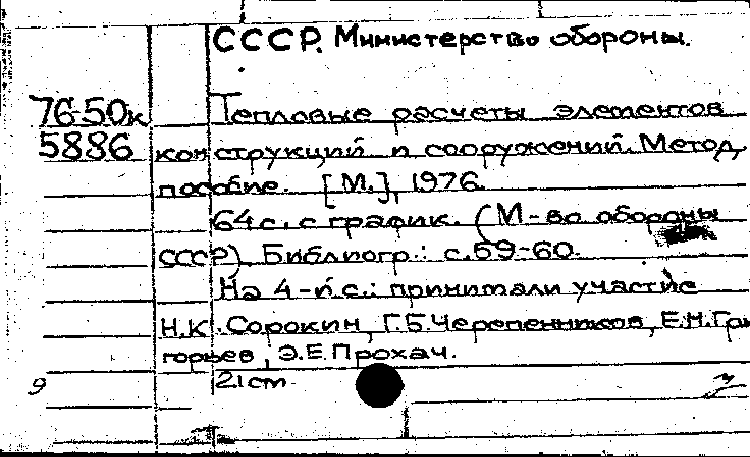 СССР. Министерство обороны.
76-50к
5886
Тепловые расчеты элементов
конструкций и сооружений. Метод.
пособие. [М.], 1976.
64 с. с график. (М-во обороны
СССР). Библиогр.: с. 59-60.
На 4-й с.: принимали участие
Н.К. Сорокин, Г.Б. Черепенников, Е.Н. Гри
горьев, Э.Е. Прохач.
21 см.
9